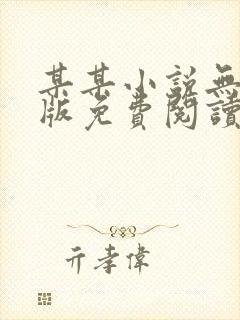 某某小說無
版免費閱讀
亓孝偉